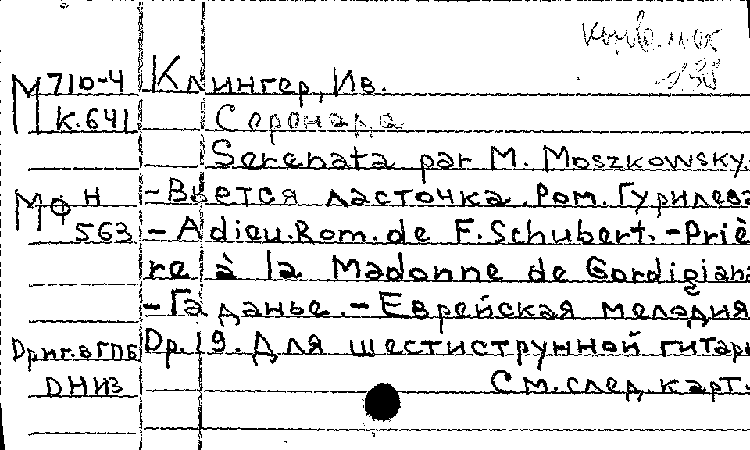 М 710-4 Клингер, Ив.
К.641 Серенада
Serenata par M. Moszkowsky.
МФ Н -Вьется ласточка. Ром. Гурилева
563 - Adieu. Rom. de F. Schubert. - Priè
re à la Madonne de Gordigiana
- Гаданье. - Еврейская мелодия
Ориг. в ГПБ Ор. 19. Для шестиструнной гитары
ОНИЗ См. след. карт.